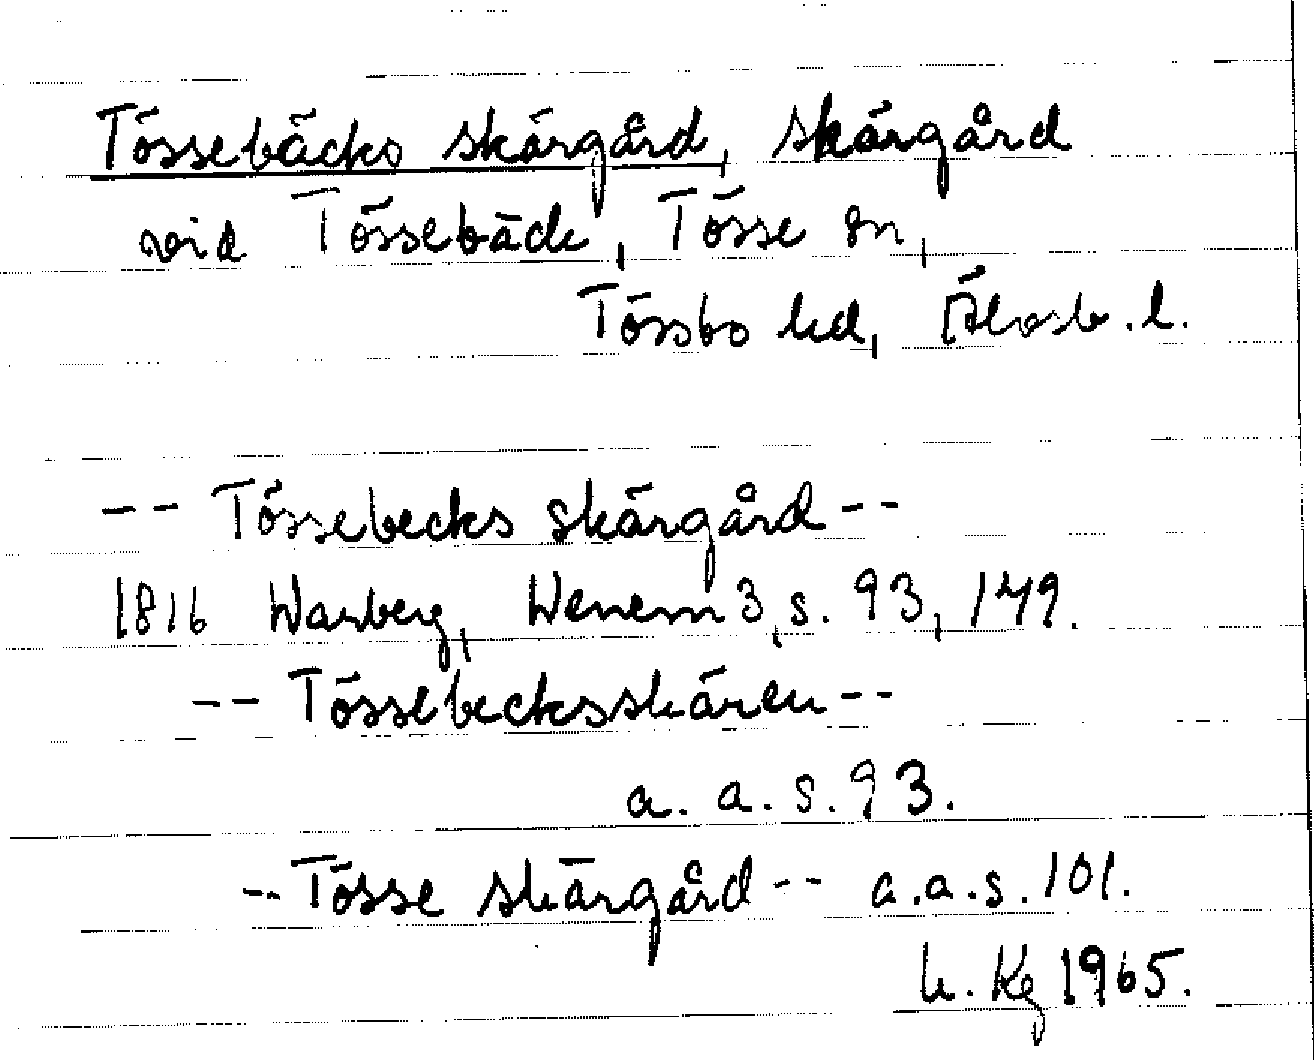 Tössebäcks skärgård, skärgård
vid Tössebäck, Tösse sn,
Tössbo hd, Älvsb. l.
-- Tössebecks skärgård --
1816 Warberg, Wenern 3, s. 93, 149.
-- Tössebecksskären --
a. a. s. 93.
-- Tösse skärgård -- a. a. s. 101.
1965.